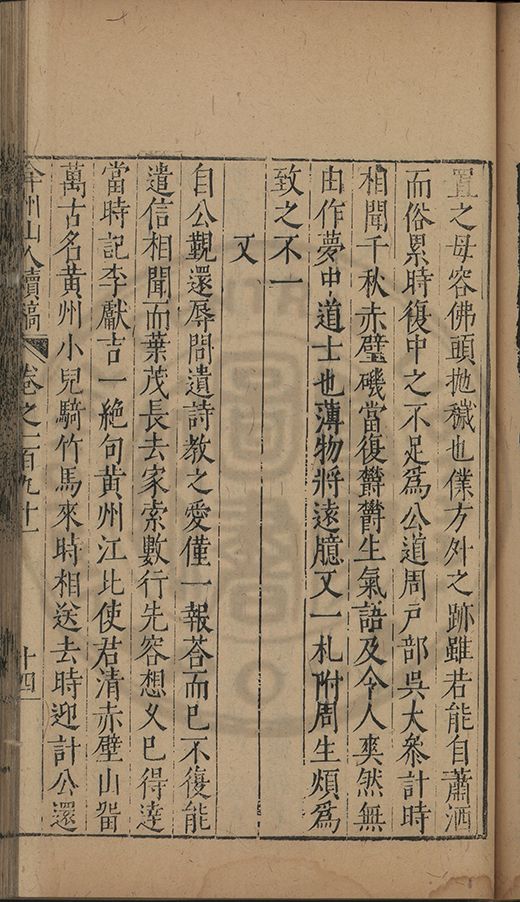 置之毋容佛頭拋穢也僕方外之跡雖若能自蕭洒
而俗累時復中之不足爲公道周戶部吳大叅計時
相聞千秋赤璧磯當復欝欝生氣語及令人爽然無
由作夢中道士也薄物將遠臆又一札附周生煩爲
致之不一
又
自公覲還辱問遺詩教之愛僅一報荅而已不復能
遣信相聞而葉茂長去家索數行先容想乂已得達
當時記李獻吉一絶句黃州江比使君清赤壁山留
萬古名黃州小兒騎竹馬來時相送去時迎計公還
弇州山人續稿 卷之一百九十一 十四